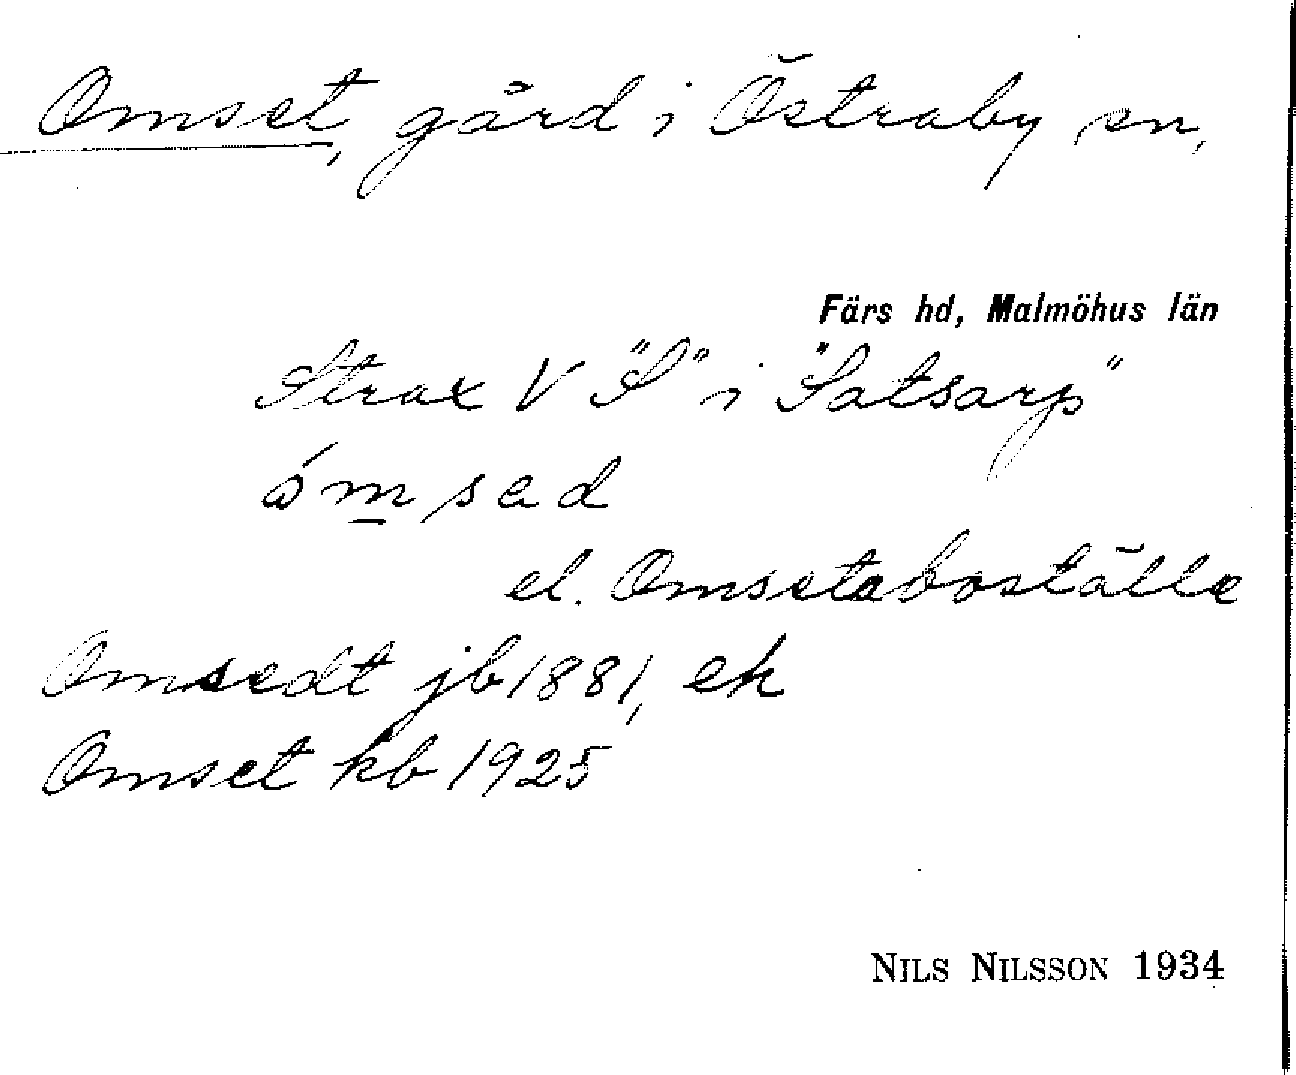 Omset, gård i Östraby sn,
Färs hd, Malmöhus län
Strax V "S" i "Satsarp"
ómsad
el. Omsetaboställe
Omsedt jb 1881, ek
Omset kb 1925
NILS NILSSON 1934